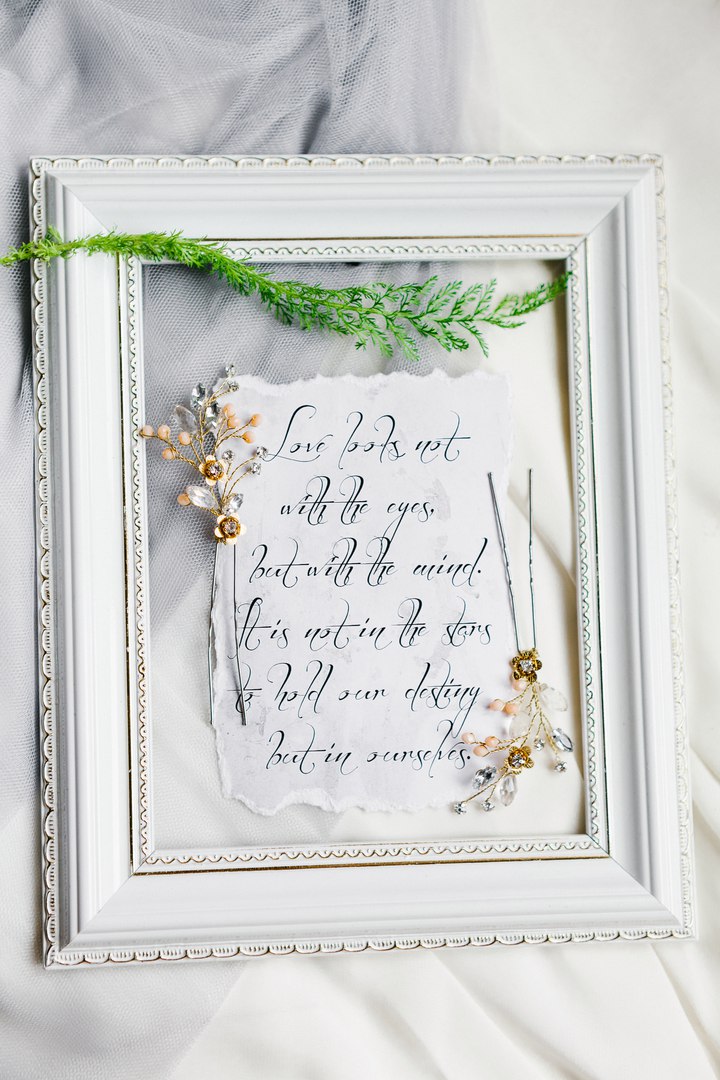 Love looks not
with the eyes,
but with the mind.
It is not in the stars
to hold our destiny
but in ourselves.